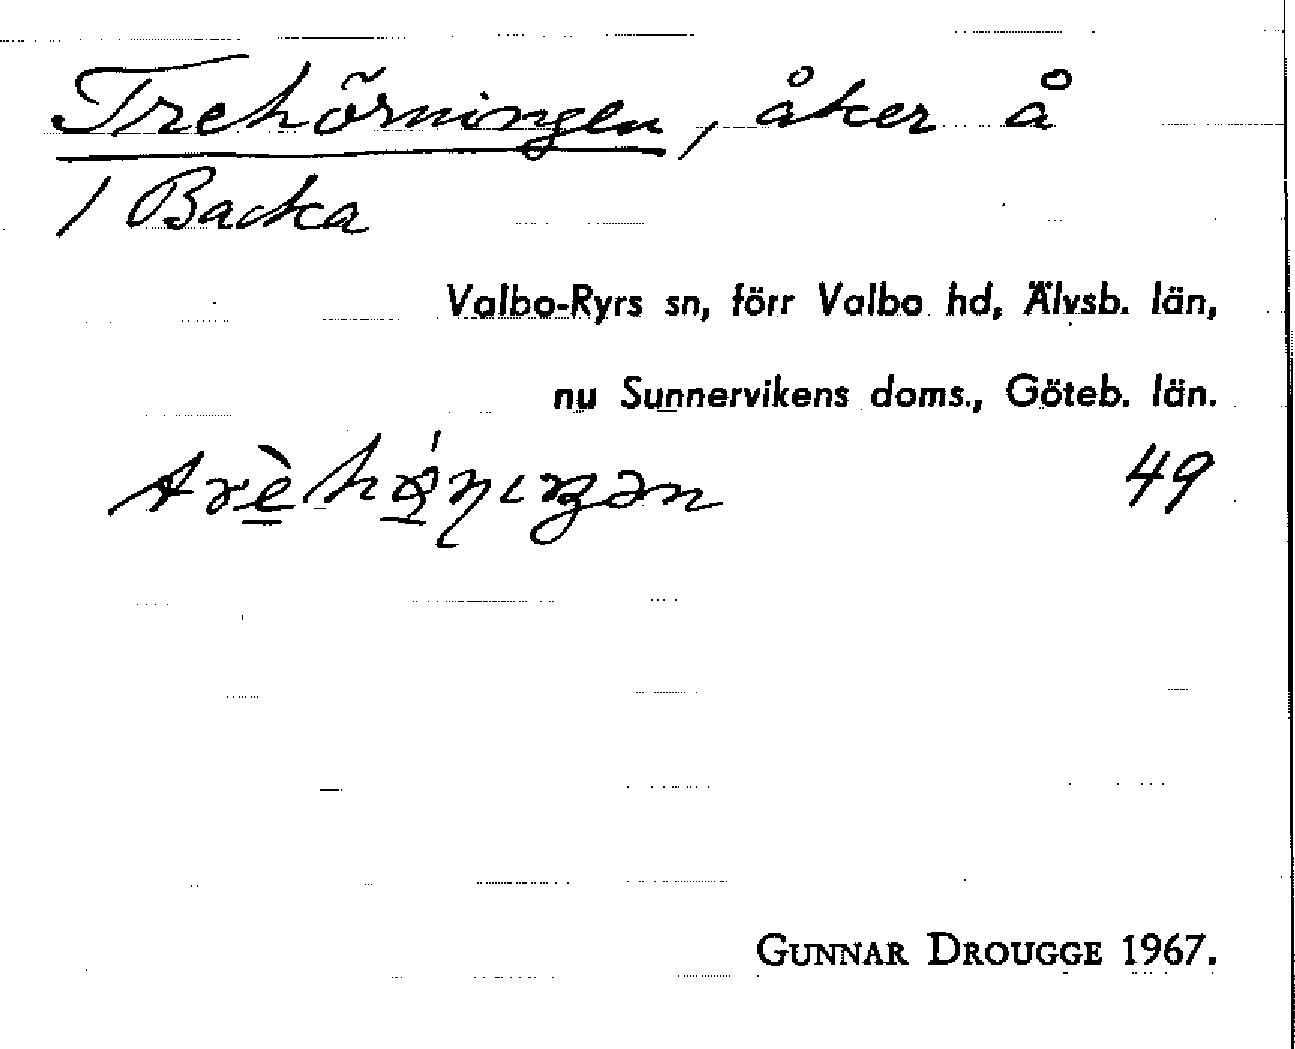 Trehörningen, åker å
1 Backa
Valbo-Ryrs sn, förr Valbo hd, Älvsb. län,
nu Sunnervikens doms., Göteb. län.
49
GUNNAR DROUGGE 1967.